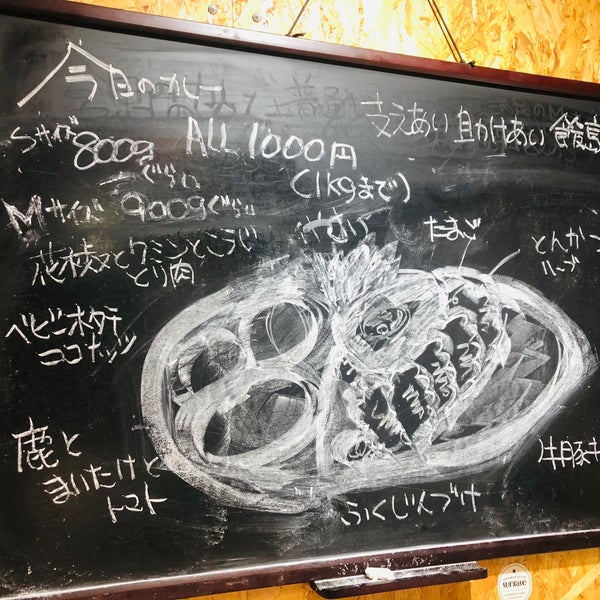 今日のカレー
Sサイズ 800gぐらい
ALL 1000円
(1kgまで)
Mサイズ 900gぐらい
花椒とクミンとこうじ
とり肉
やさい
たまご
とんかつ
ベビーホタテ
ココナッツ
鹿と
まいたけと
トマト
ふくじんづけ
牛豚キ
SUNRISE